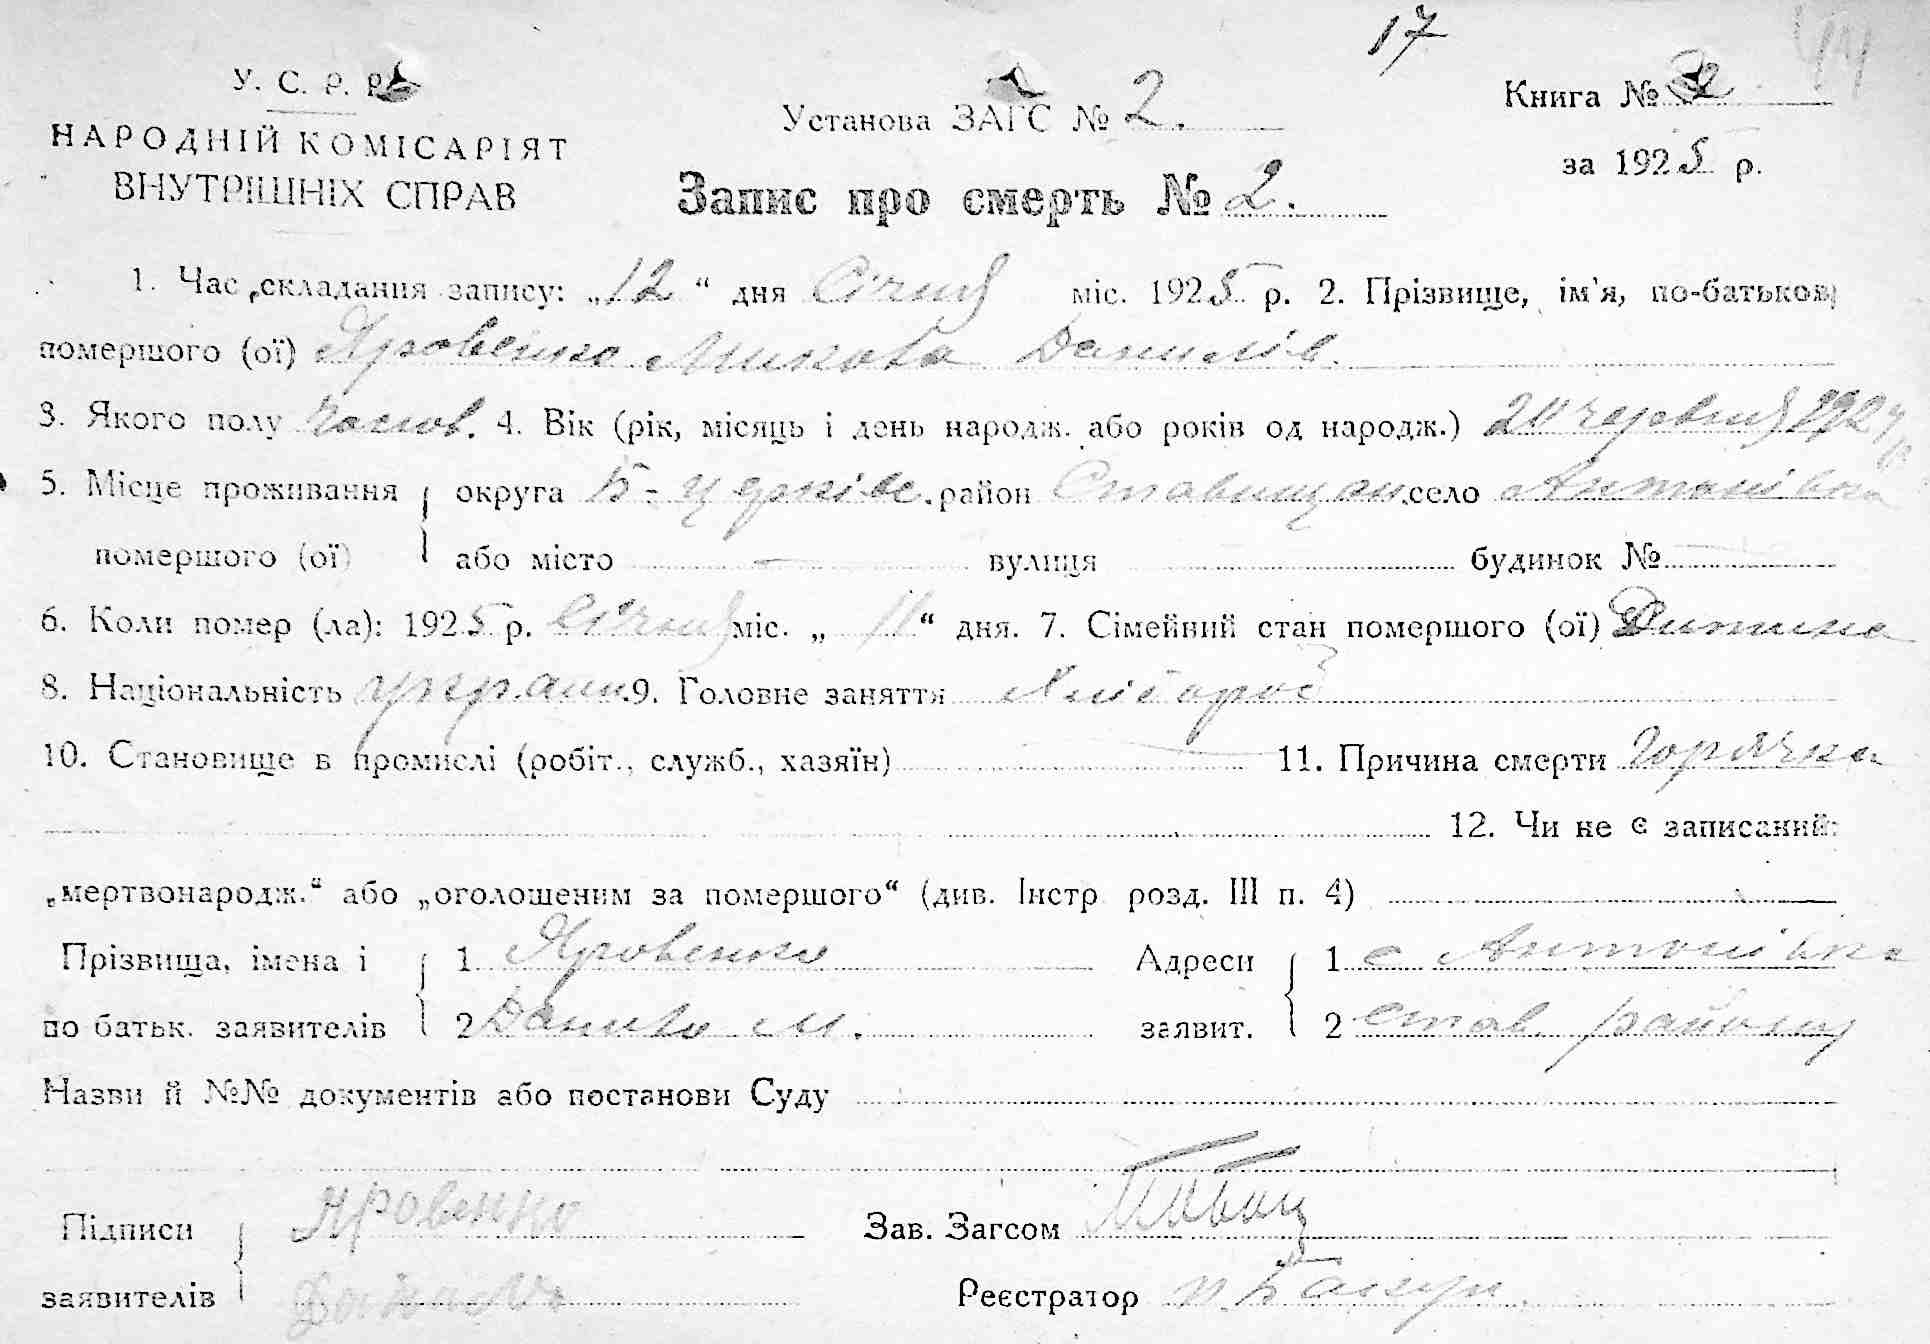 17
У. С. Р. Р.
НАРОДНІЙ КОМІСАРІЯТ
ВНУТРІШНІХ СПРАВ
Установа ЗАГС № 2.
Запис про смерть № 2.
Книга № 2
за 1925 р.
1. Час складання запису: „12“ дня Січня міс. 1925 р. 2. Прізвище, ім'я, по-батькові
помершого (ої) Яровенко Микола Данилів.
3. Якого полу чолов. 4. Вік (рік, місяць і день народж. або років од народж.) 20 червня 1924 р
5. Місце проживання помершого (ої) { округа Б-Церківс. район Ставищан. село Антонівка
або місто вулиця будинок №
6. Коли помер (ла): 1925 р. Січня міс. „11“ дня. 7. Сімейний стан помершого (ої) Дитина
8. Національність украин. 9. Головне заняття Хлібороб
10. Становище в промислі (робіт., служб., хазяїн) 11. Причина смерти Горячка
12. Чи не є записаний:
„мертвонародж.“ або „оголошеним за помершого“ (див. Інстр розд. III п. 4)
Прізвища, імена і по батьк. заявителів { 1 Яровенко
2 Данило М.
Адреси заявит. { 1 с Антонівка
2 Став. району
Назви й №№ документів або постанови Суду
Підписи заявителів { Яровенко
Данило
Зав. Загсом
Реєстратор